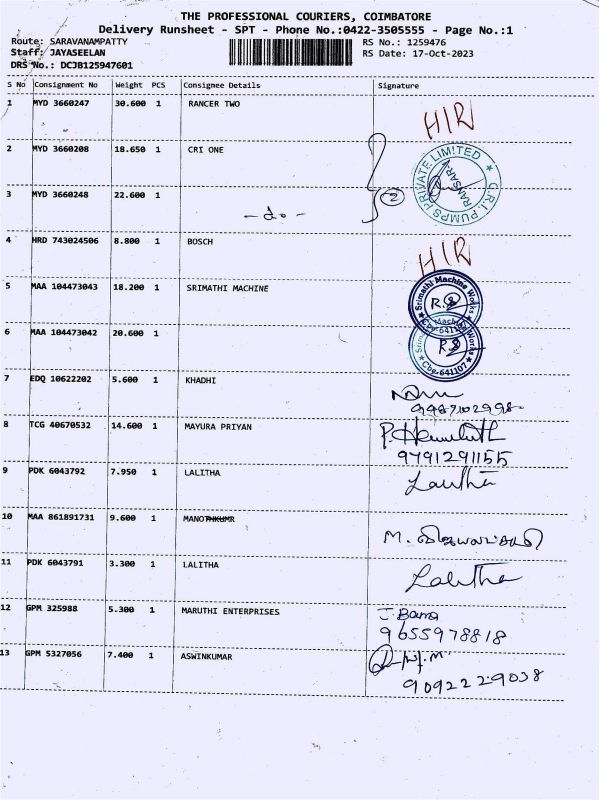 THE PROFESSIONAL COURIERS, COIMBATORE
Delivery Runsheet - SPT - Phone No.:0422-3505555 - Page No.:1
Route: SARAVANAMPATTY RS No.: 1259476
Staff: JAYASEELAN RS Date: 17-Oct-2023
DRS No.: DCJB125947601
S No Consignment No Weight PCS Consignee Details Signature
1 MYD 3660247 30.600 1 RANCER TWO
H/R
2 MYD 3660208 18.650 1 CRI ONE
C.R.I. PUMPS PRIVATE LIMITED
3 MYD 3660248 22.600 1
- do - 2
4 HRD 743024506 8.800 1 BOSCH
H/R
5 MAA 104473043 18.200 1 SRIMATHI MACHINE
Srimathi Machine Works
R.S
6 MAA 104473042 20.600 1
R.S
Cbe-641107
7 EDQ 10622202 5.600 1 KHADHI
8 TCG 40670532 14.600 1 MAYURA PRIYAN
9791291155
9 PDK 6043792 7.950 1 LALITHA
Lalitha
10 MAA 861891731 9.600 1 MANOTHKUMR
11 PDK 6043791 3.300 1 LALITHA
Lalitha
12 GPM 325988 5.300 1 MARUTHI ENTERPRISES
J. Bama
9655978818
13 GPM 5327056 7.400 1 ASWINKUMAR
9092229038